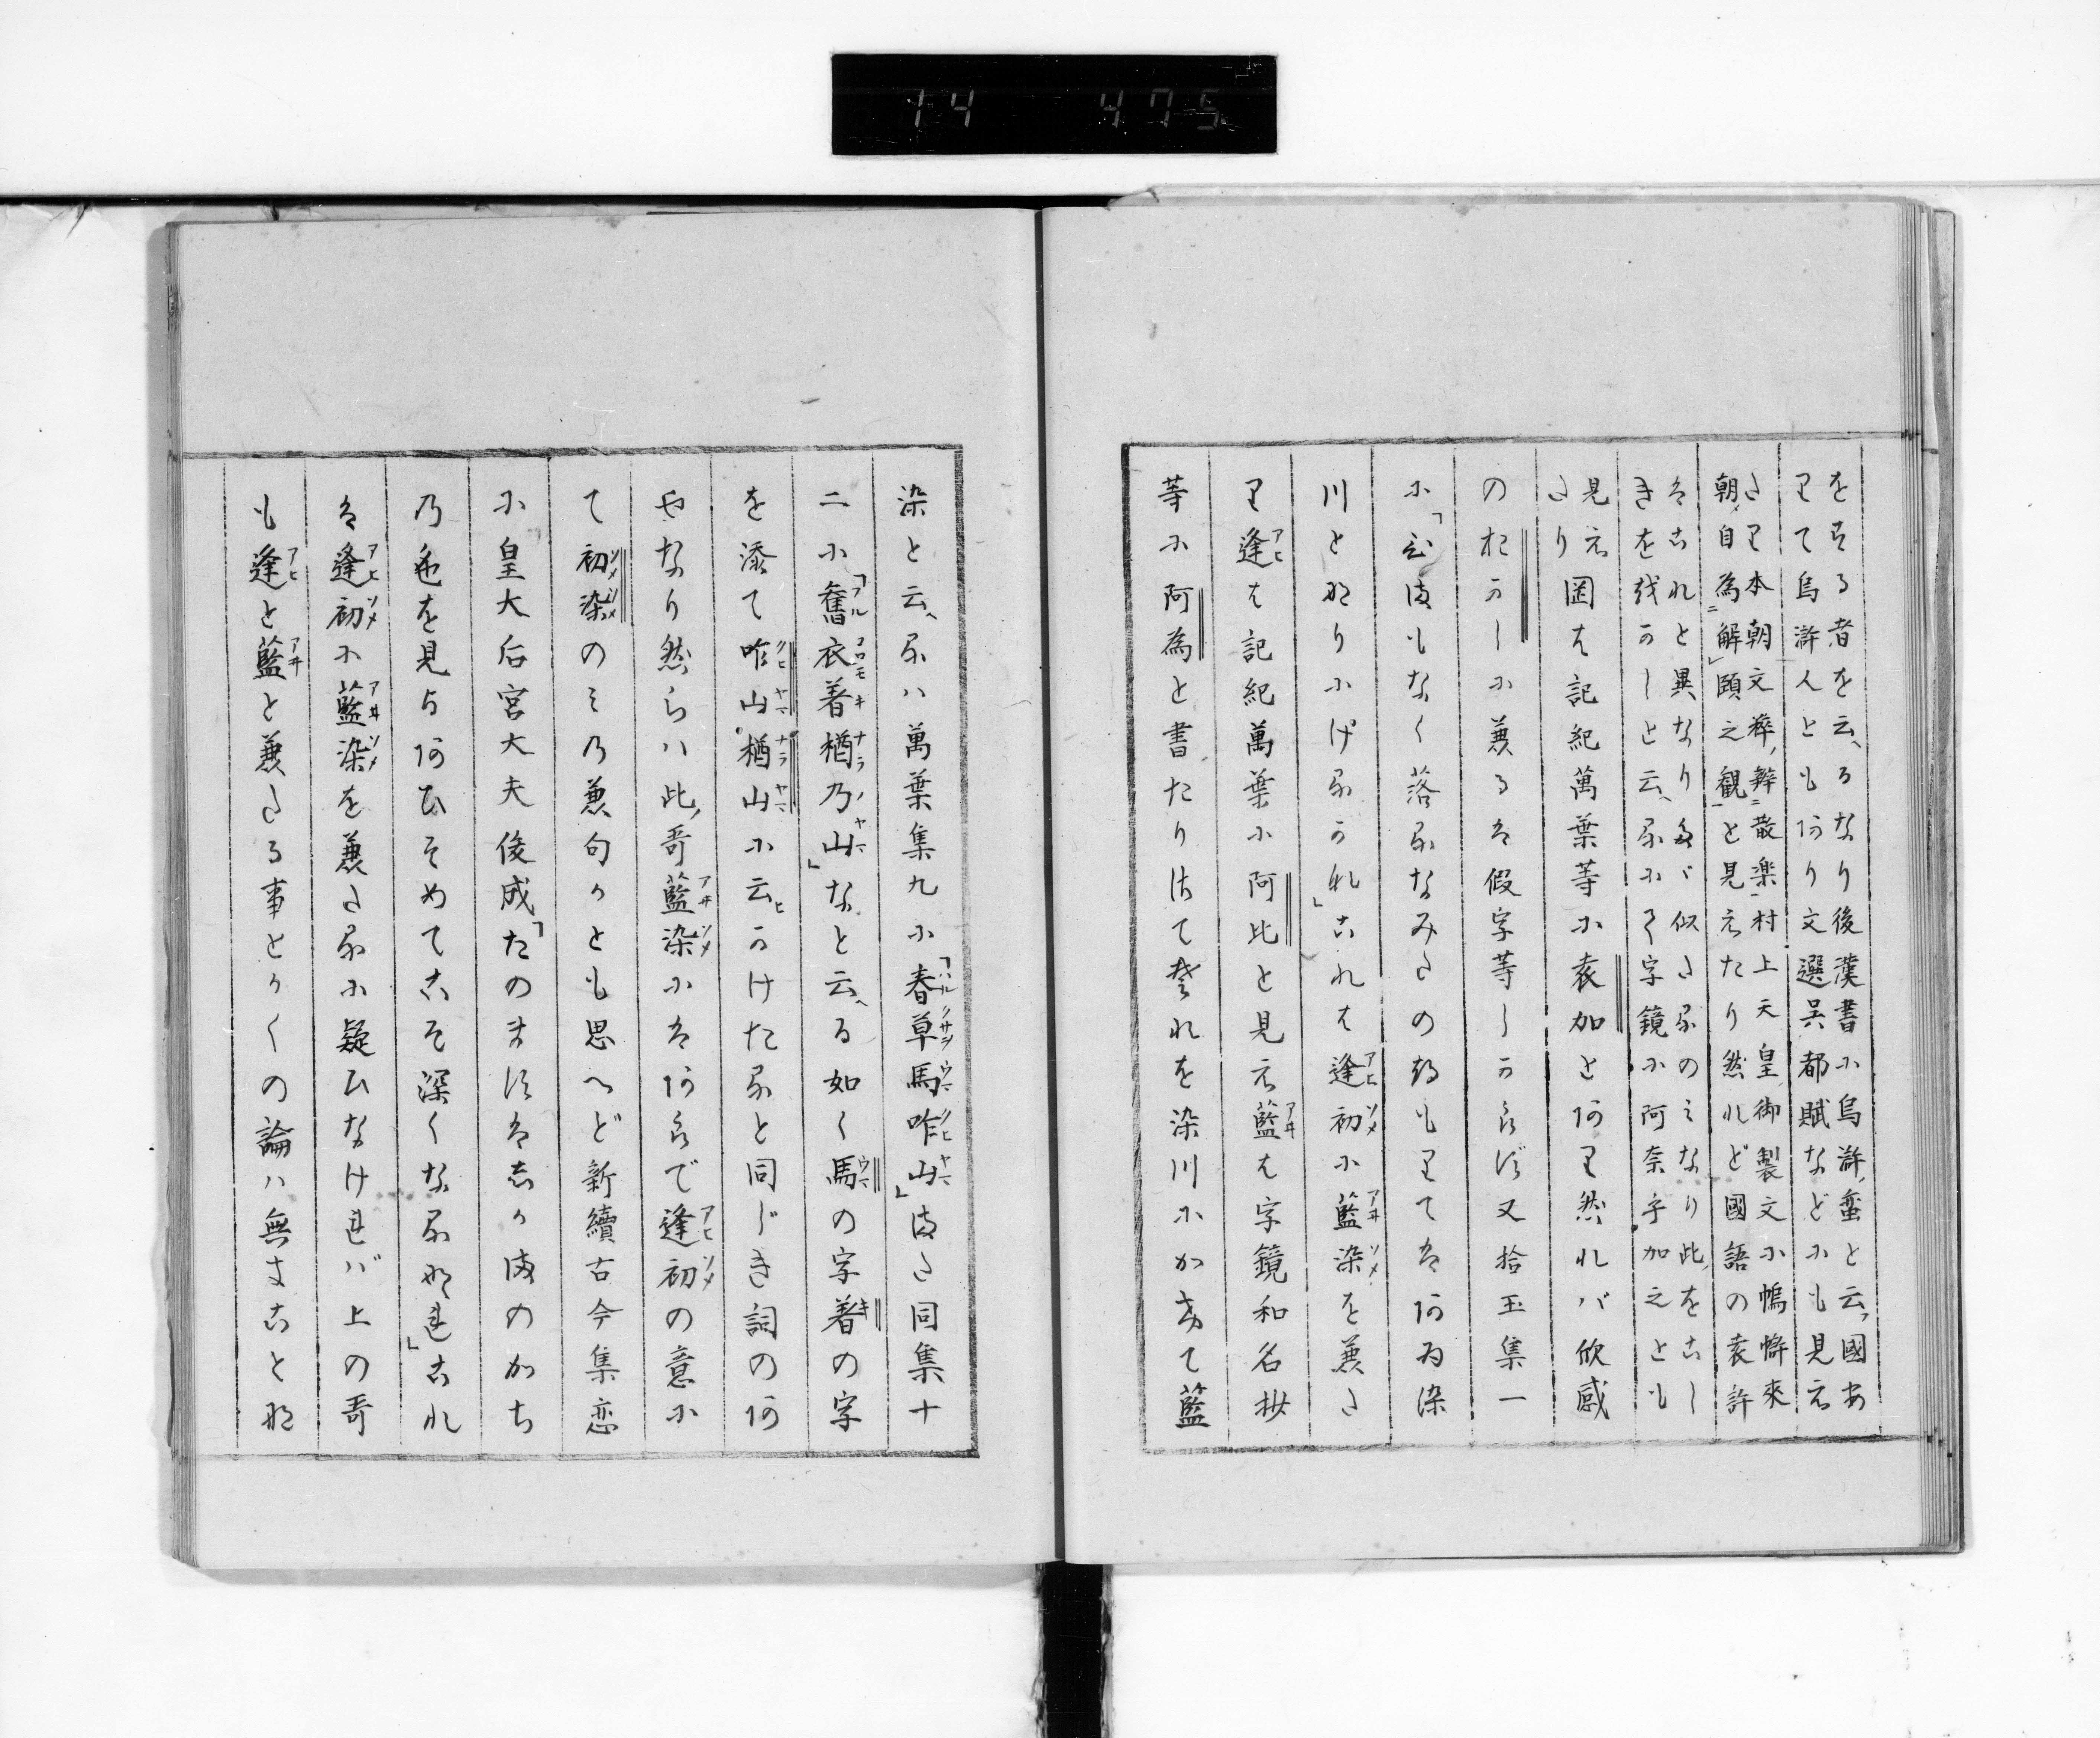 14 475
をする者を云へるなり後漢書に烏滸蛮と云国あ
りて烏滸人ともあり文選呉都賦などにも見え
たり本朝文粋弁散楽村上天皇御製文に嶋幃来
朝自為解頤之観と見えたり然れど国語の袁許
はこれと異なりたゞ似たるのミなり此ををこし
きを越かしと云るに了字鏡に阿奈乎加之とも
見え
たり
罔は記紀萬葉等に袁加とあり然れバ欣感
のおかしに兼るは假字等しからず又拾玉集一
に「ひまもなく落るなみたの努もりてはあゐ染
川となりにけるかれ」これは逢初に藍染を兼た
り逢は記紀萬葉に阿比と見え藍は字鏡和名抄
等に阿為と書たりはて発れを染川にかけて藍
染と云るハ萬葉集九に「春草馬咋山」また同集十
二に「舊衣著楢乃山」なと云る如く馬の字著の字
を添て咋山楢山に云かけたると同じき詞のあ
やなり然らハ此哥藍染にはあらで逢初の意に
て初染のミの兼句かとも思へど新續古今集恋
に皇大后宮大夫俊成「たのますはしかまのかち
乃色を見よあひそめてこそ深くなるなれ」これ
は逢初に藍染を兼たるに疑ひなけれバ上の哥
も逢と藍と兼たる事とかくの論ハ無きことな